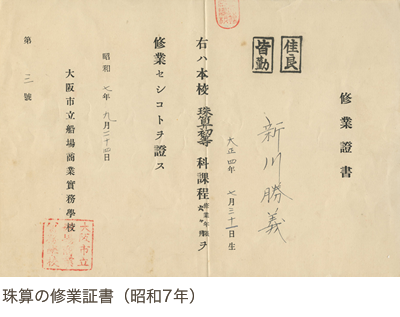 修業證書
佳良
皆勤
新川勝義
大正四年 七月三十一日生
右ハ本校 珠算初等 科課程 ヲ
修業セシコトヲ證ス
昭和七年九月二十四日
大阪市立船場商業實務學校
第 三 號
大阪市立
珠算の修業証書（昭和7年）